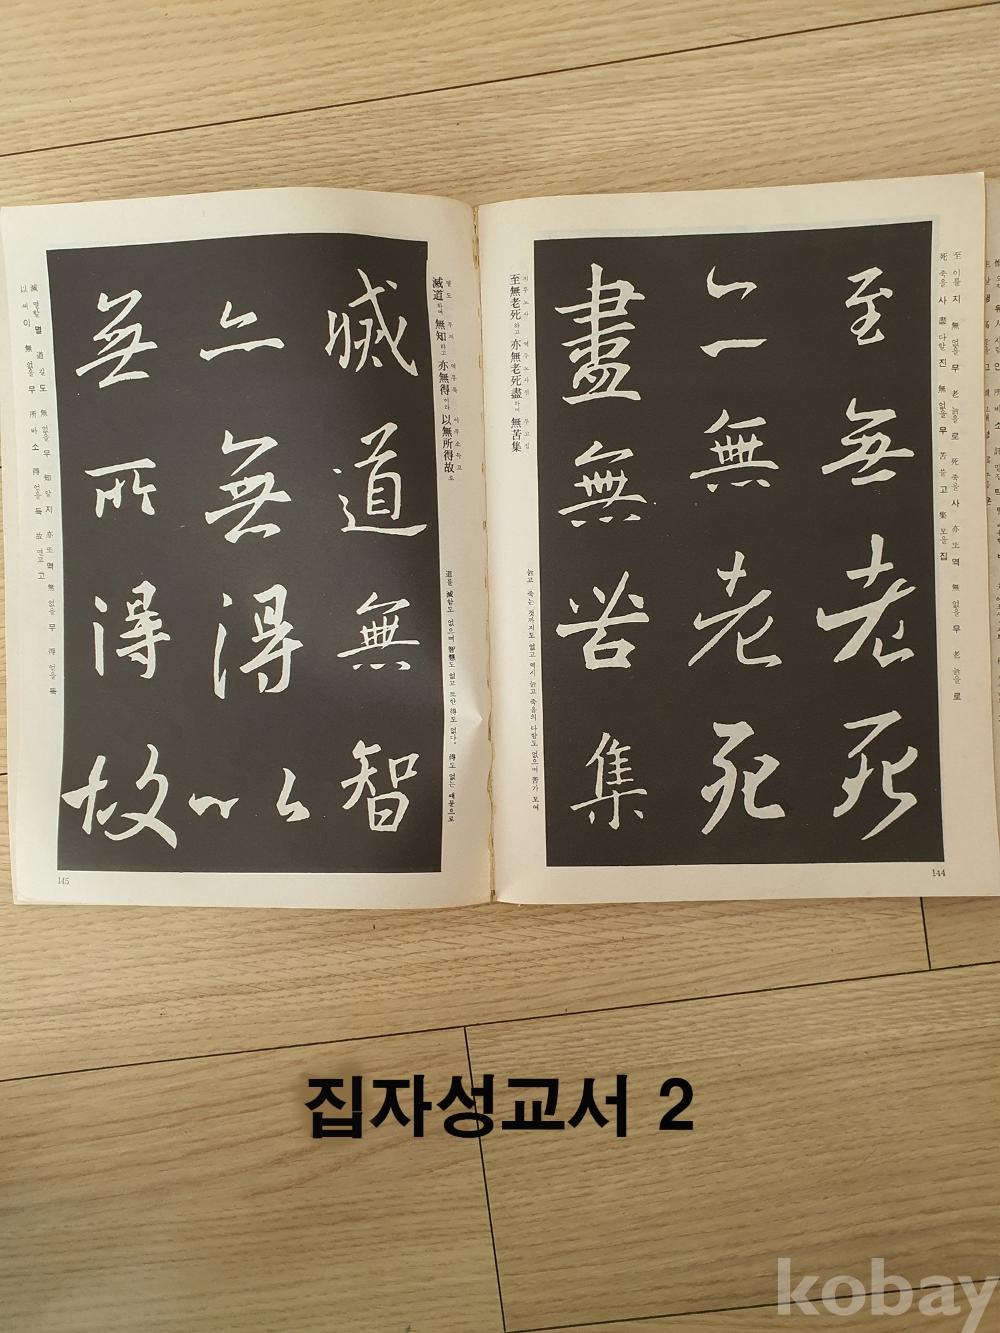 至無老死
亦無老死
盡無苦集
至無老死하고 亦無老死盡하며 無苦集
지무노사 역무노사진 무고집
늙고 죽는 것까지도 없고 역시 늙고 죽음의 다함도 없으며 苦가 모여
至 이를 지 無 없을 무 老 늙을 로 死 죽을 사 亦 또 역 無 없을 무 老 늙을 로
死 죽을 사 盡 다할 진 無 없을 무 苦 쓸 고 集 모을 집
144
滅道無智
亦無得以
無所得故
멸도 무지 역무득 이무소득고
滅道하며 無知하고 亦無得이라 以無所得故로
道를 滅함도 없으며 智慧도 없고 또한 得도 없다. 得도 없는 때문으로
滅 멸할 멸 道 길 도 無 없을 무 知 알 지 亦 또 역 無 없을 무 得 얻을 득
以 써 이 無 없을 무 所 바 소 得 얻을 득 故 연고 고
145
집자성교서 2
kobay